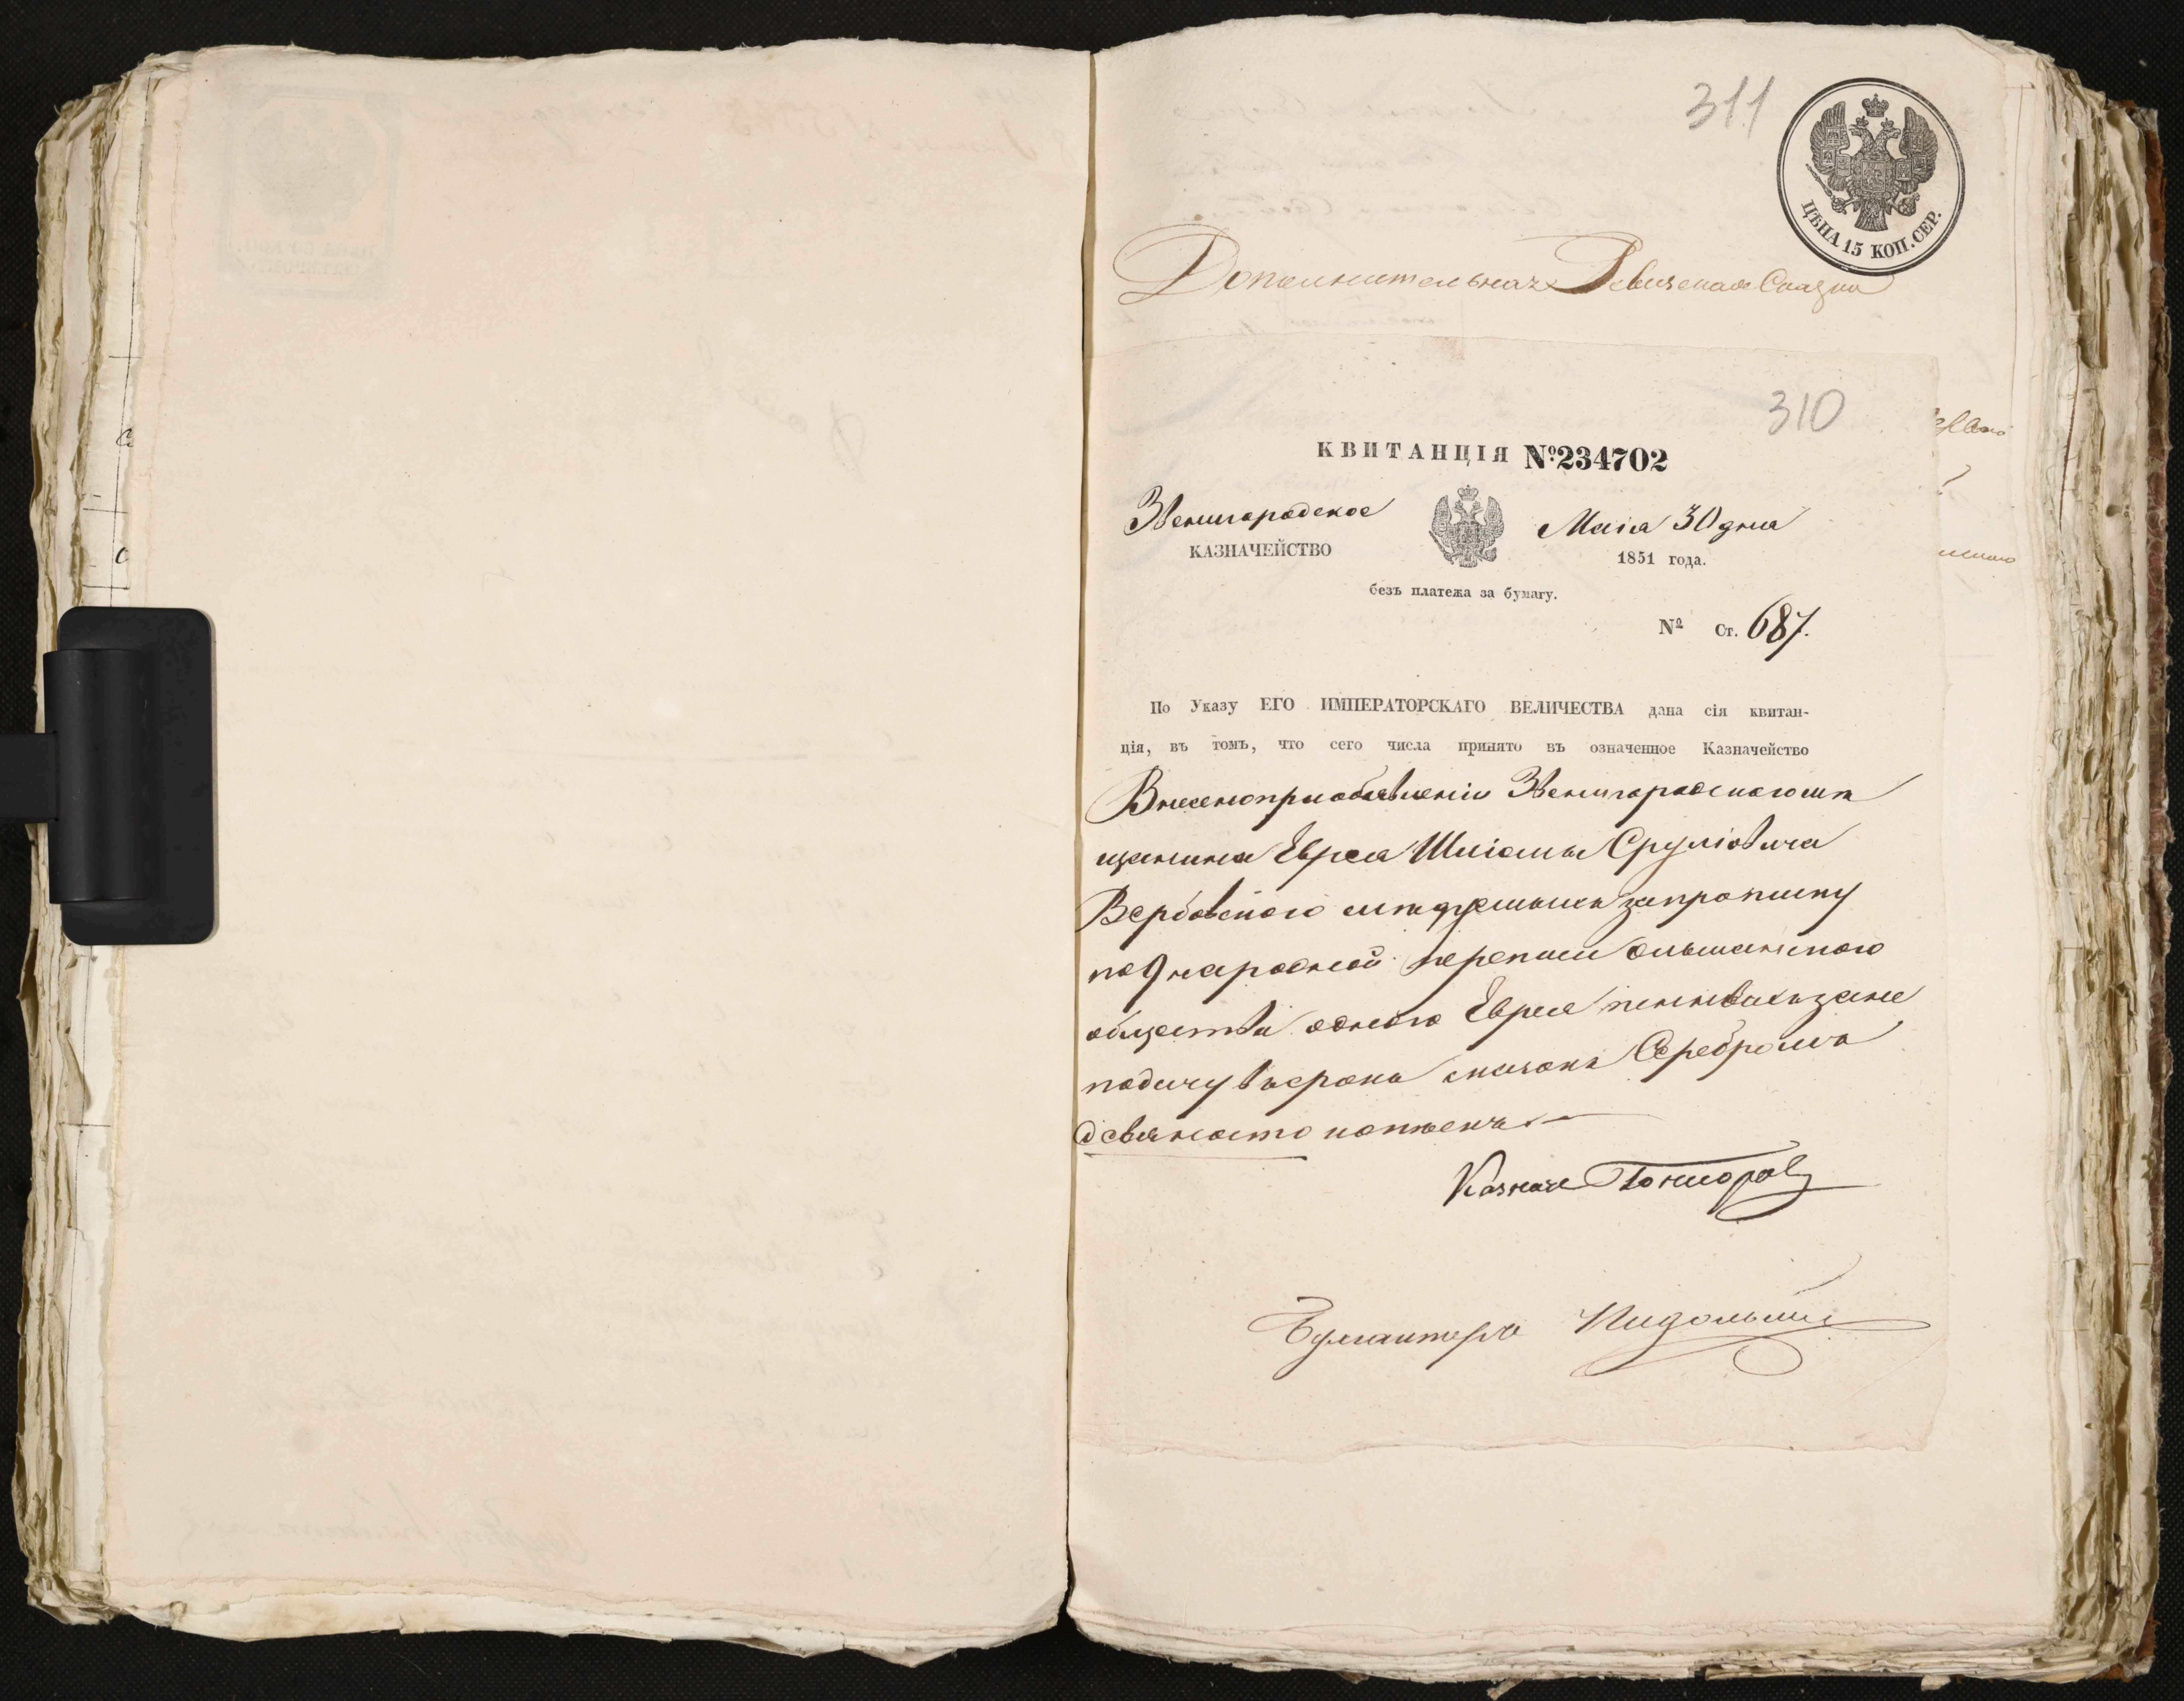 311
ЦѢНА 15 КОП. СЕР.
Дополнительная Ревизская Сказка
310
КВИТАНЦІЯ №234702
Звенигородское
КАЗНАЧЕЙСТВО
Маія 30 дня
1851 года.
безъ платежа за бумагу.
№ Ст. 687.
По Указу ЕГО ИМПЕРАТОРСКАГО ВЕЛИЧЕСТВА дана сія квитан-
ція, въ томъ, что сего числа принято въ означенное Казначейство
Внесено при объявленіи Звенигородского мѣ
щанина Еврея Шліомы Сруліовича
Вербовского штрафныхъ за прописку
по 9 народной переписи Ольшанского
общества одного Еврея и за не
подачу въ срокъ сказокъ Серебромъ
девяносто копѣекъ
Казначе
Бухгалтеръ